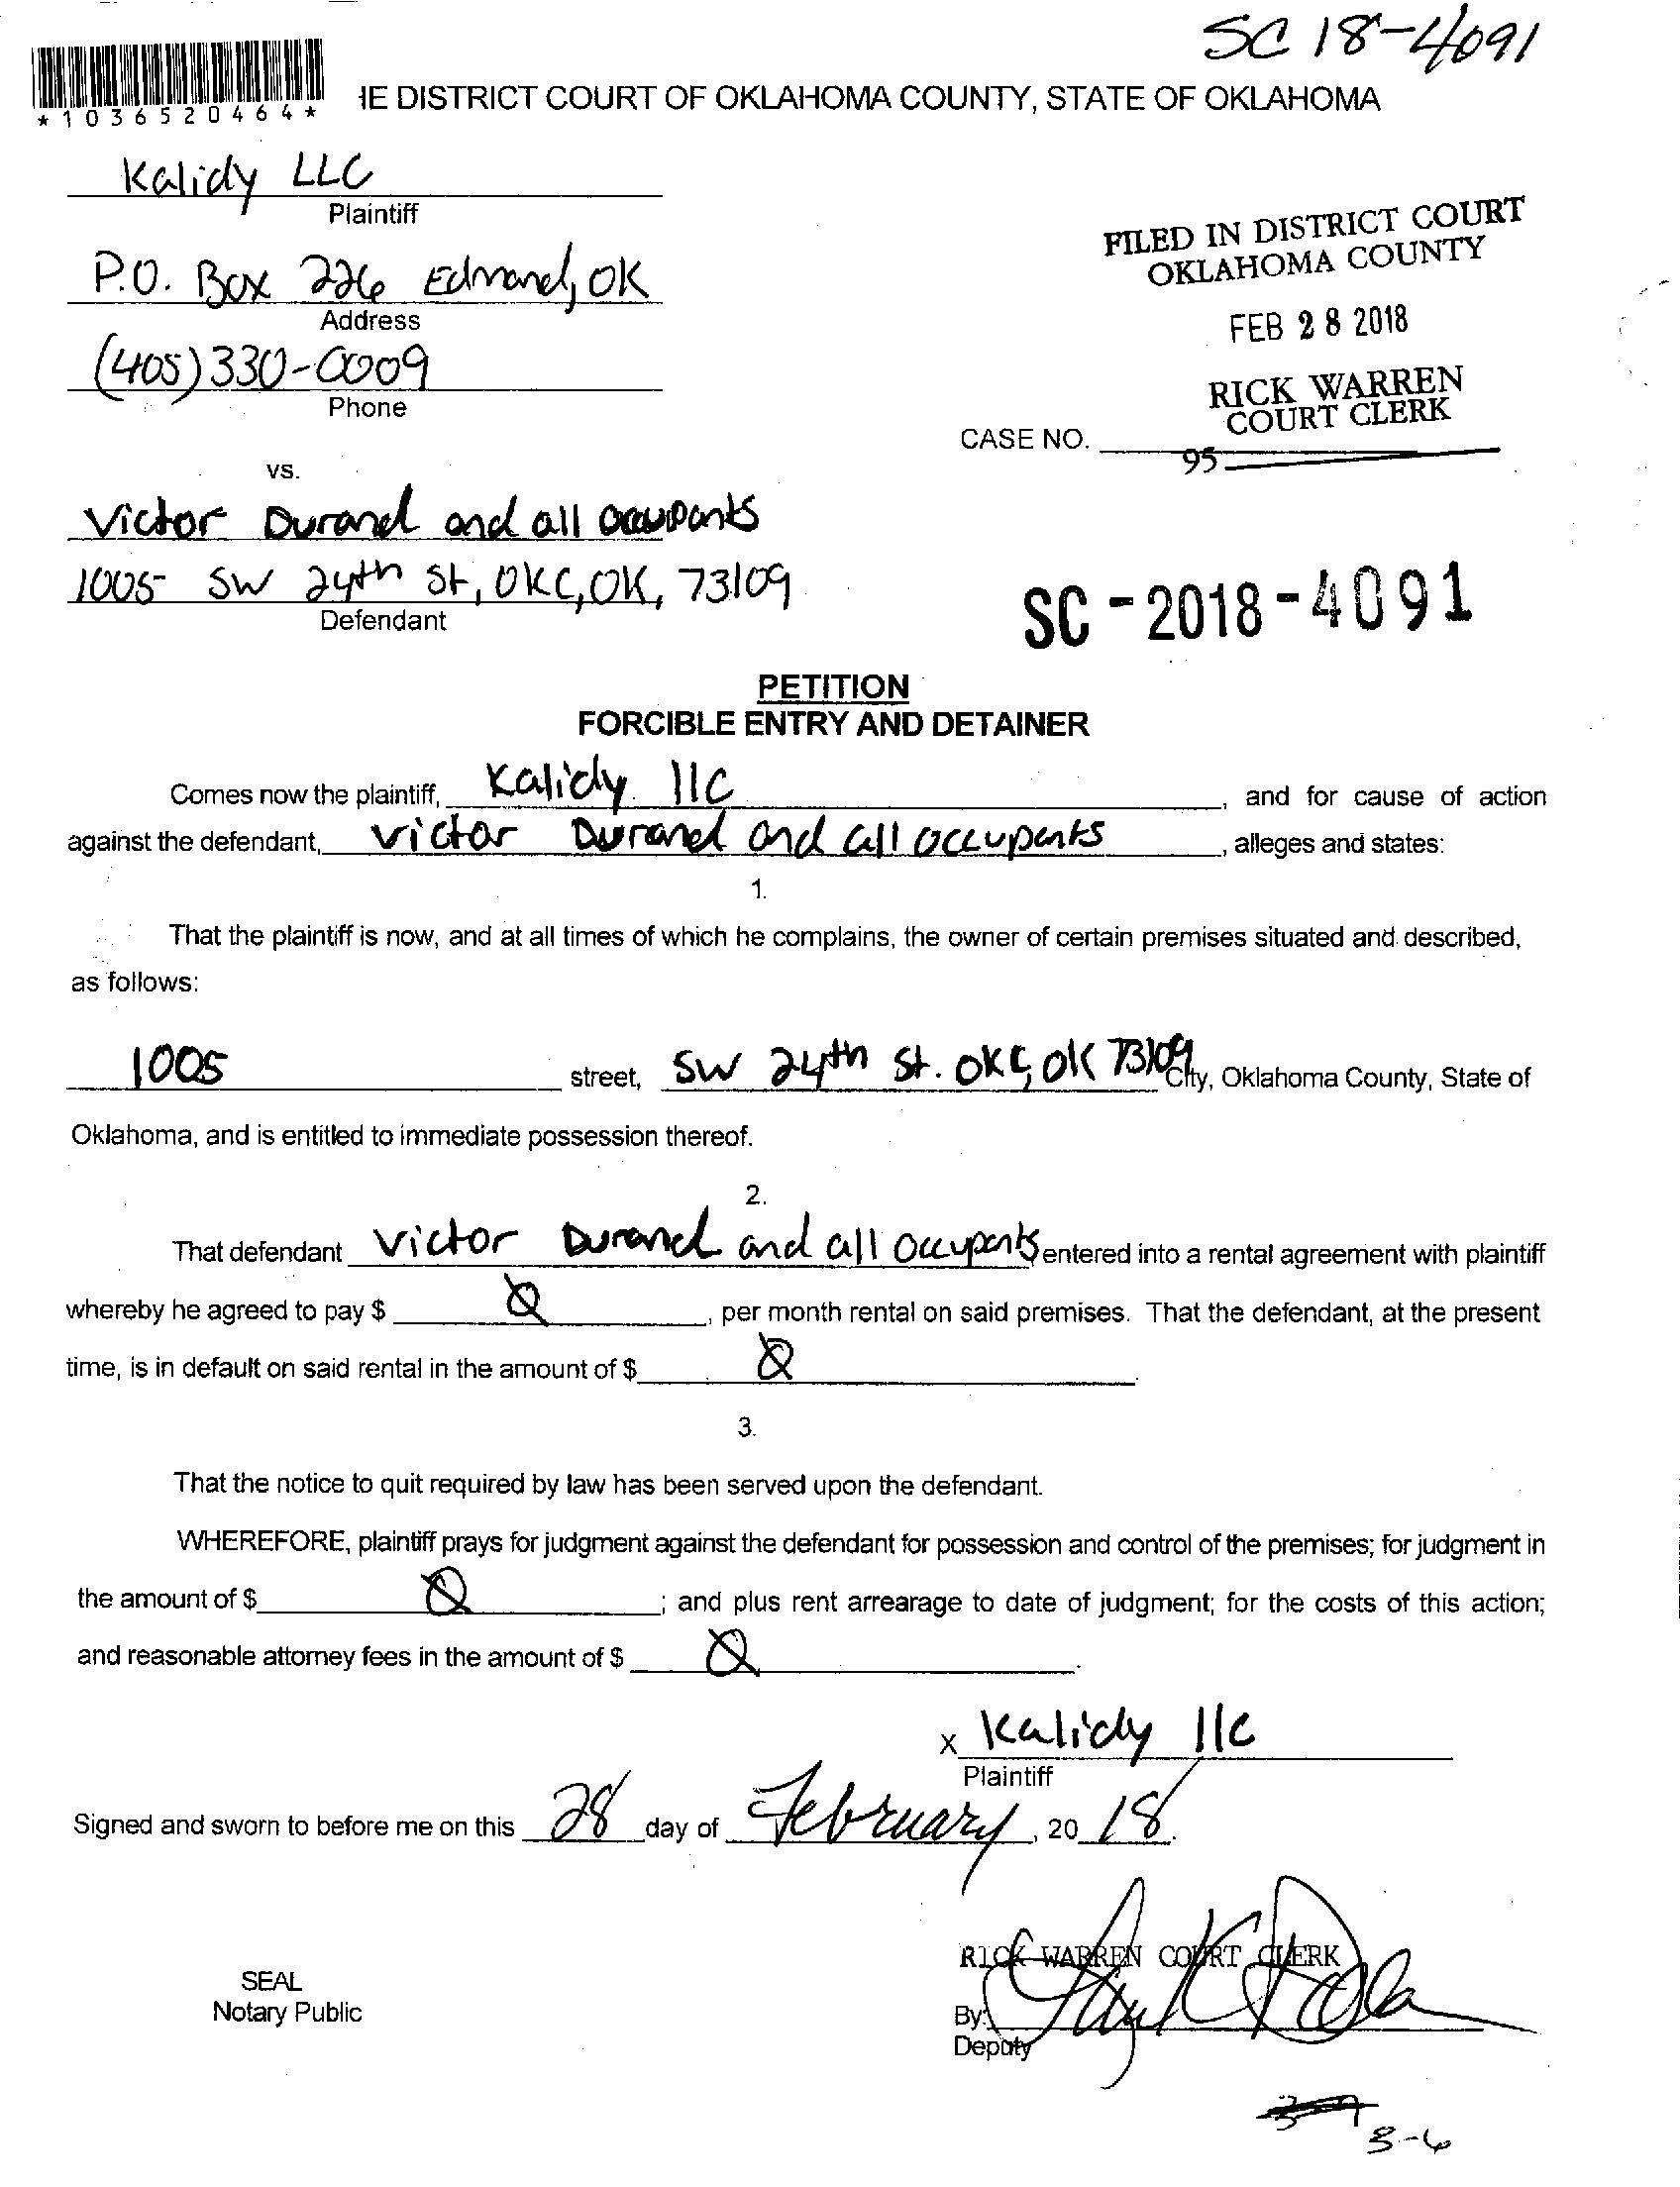 SC 18-4091
*1036520464*
HE DISTRICT COURT OF OKLAHOMA COUNTY, STATE OF OKLAHOMA
Kalidy LLC
Plaintiff
P.O. Box 226 Edmond, OK
Address
(405) 330-0009
Phone
FILED IN DISTRICT COURT
OKLAHOMA COUNTY
FEB 28 2018
RICK WARREN
COURT CLERK
CASE NO.
95
vs.
Victor Durand and all occupants
1005 SW 24th St, OKC, OK, 73109
Defendant
SC-2018-4091
PETITION
FORCIBLE ENTRY AND DETAINER
Comes now the plaintiff, Kalidy llc, and for cause of action
against the defendant, Victor Durand and all occupants, alleges and states:
1.
That the plaintiff is now, and at all times of which he complains, the owner of certain premises situated and described,
as follows:
1005 street, SW 24th St. OKC, OK 73109 City, Oklahoma County, State of
Oklahoma, and is entitled to immediate possession thereof.
2.
That defendant Victor Durand and all occupants entered into a rental agreement with plaintiff
whereby he agreed to pay $ Ø, per month rental on said premises. That the defendant, at the present
time, is in default on said rental in the amount of $ Ø.
3.
That the notice to quit required by law has been served upon the defendant.
WHEREFORE, plaintiff prays for judgment against the defendant for possession and control of the premises; for judgment in
the amount of $ Ø; and plus rent arrearage to date of judgment; for the costs of this action;
and reasonable attorney fees in the amount of $ Ø.
x Kalidy llc
Plaintiff
Signed and sworn to before me on this 28 day of February, 2018.
RICK WARREN COURT CLERK
SEAL
Notary Public
By:
Deputy
3-6